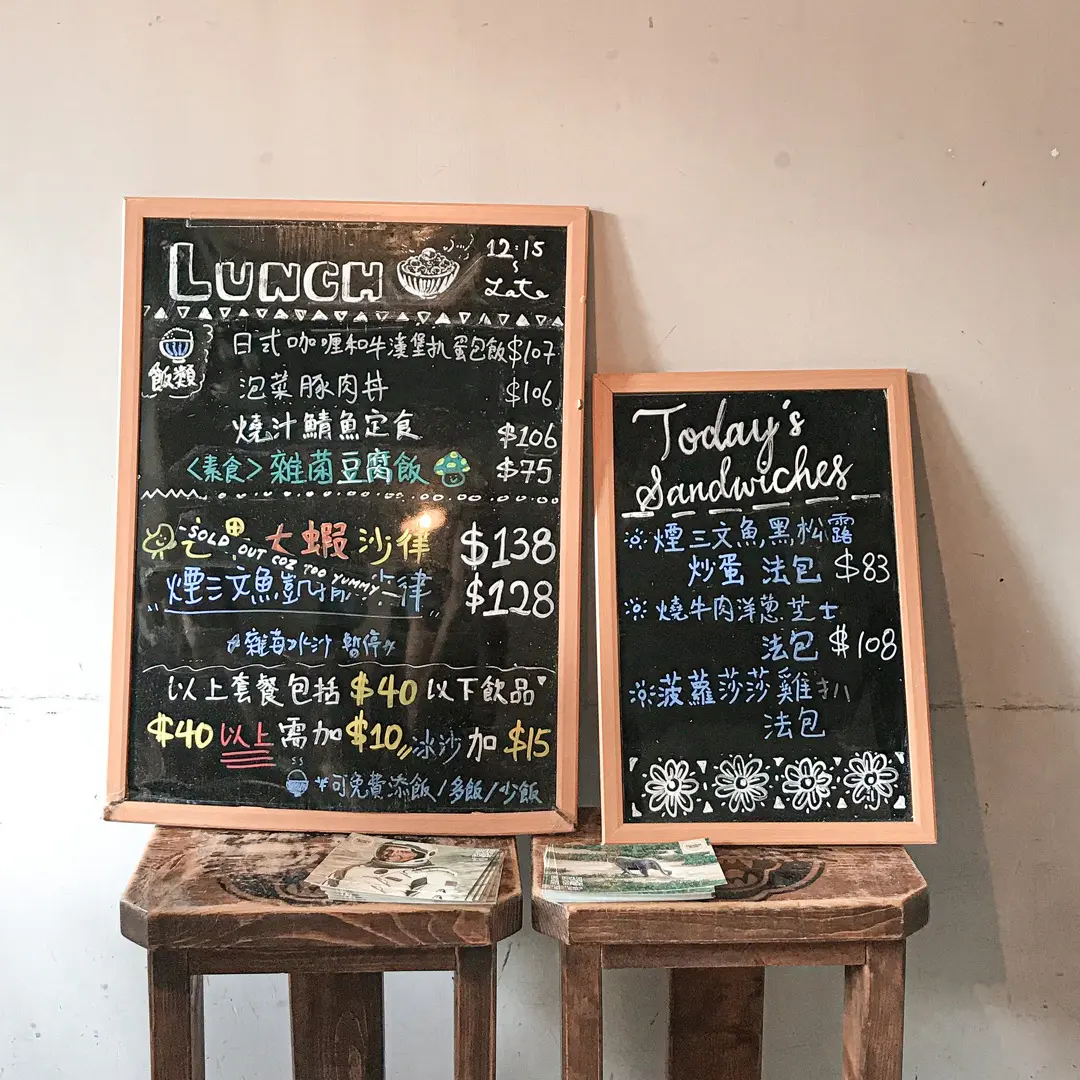 LUNCH
12:15
~
Late
飯類
日式咖喱和牛漢堡扒蛋包飯$107
泡菜豚肉丼 $106
燒汁鯖魚定食 $106
<素食>雜菌豆腐飯 $75
-SOLD OUT COZ TOO YUMMY-
大蝦沙律 $138
煙三文魚凱 律 $128
雜莓冰沙 暫停
以上套餐包括$40以下飲品
$40以上需加$10//冰沙加$15
*可免費添飯/多飯/少飯
Today's
Sandwiches
煙三文魚黑松露
炒蛋 法包 $83
燒牛肉洋蔥芝士
法包 $108
菠蘿莎莎雞扒
法包